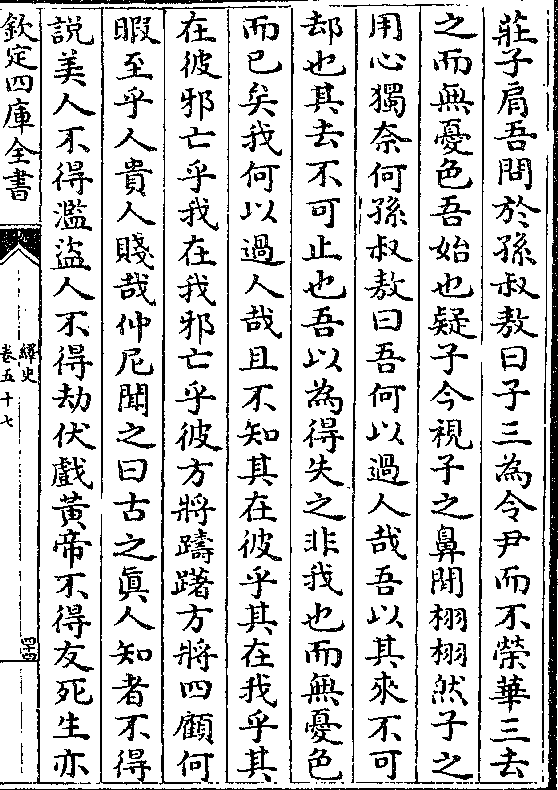 莊子肩吾問於孫叔敖曰子三為令尹而不榮華三去
之而無憂色吾始也疑子今視子之鼻間栩栩然子之
用心獨奈何孫叔敖曰吾何以過人哉吾以其來不可
却也其去不可止也吾以為得失之非我也而無憂色
而已矣我何以過人哉且不知其在彼乎其在我乎其
在彼邪亡乎我在我邪亡乎彼方將躊躇方將四顧何
暇至乎人貴人賤哉仲尼聞之曰古之眞人知者不得
說美人不得濫盜人不得劫伏戲黃帝不得友死生亦
欽定四庫全書
繹史
卷五十七
四十四